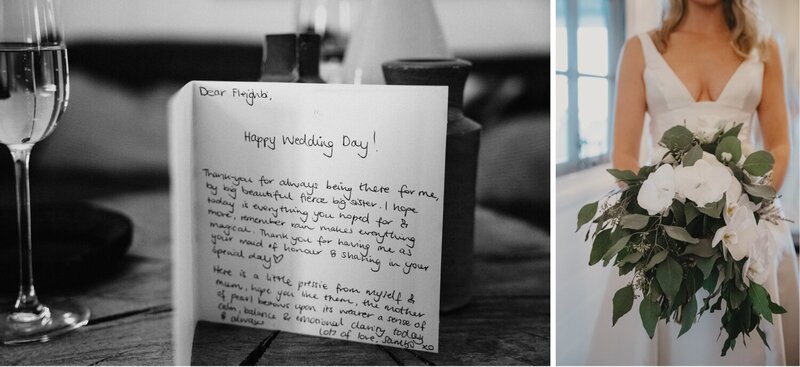 Dear Fleighbi,
Happy Wedding Day!
Thank-you for always being there for me,
by big beautiful fierce big sister. I hope
today is everything you hoped for &
more, remember rain makes everything
magical. Thank you for having me as
your maid of honour & sharing in your
special day♡
Here is a little pressie from myself &
mum, hope you like them, the mother
of pearl bestows upon its wearer a sense of
calm, balance & emotional clarity today
& always
Lots of love, xo